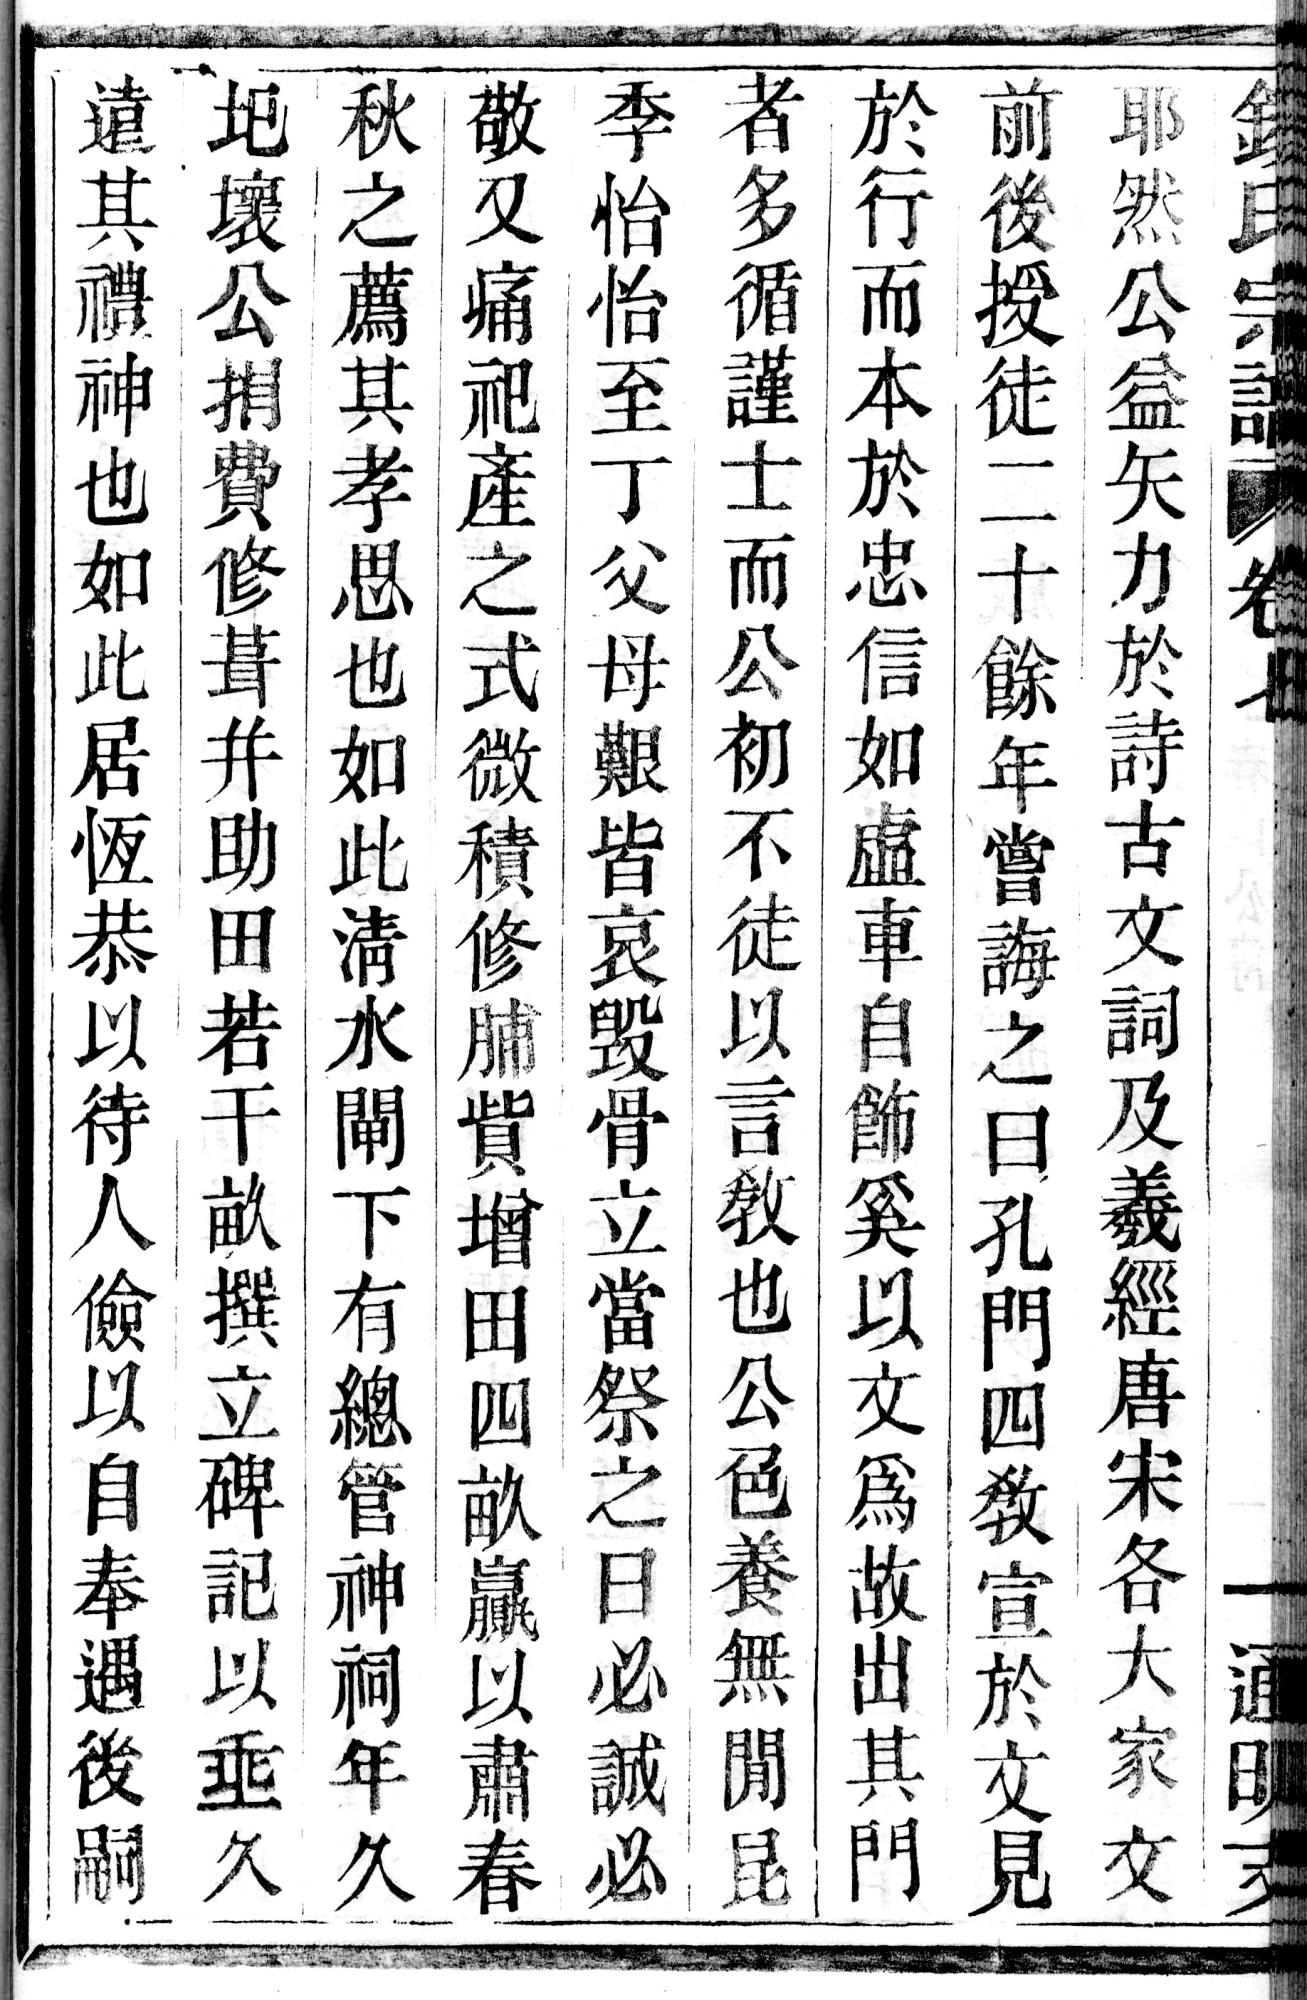 氏宗譜 卷七 一 通明支
耶然公益矢力於詩古文詞及羲經唐宋各大家文
前後授徒二十餘年嘗誨之曰孔門四教宣於文見
於行而本於忠信如虛車自飾奚以文爲故出其門
者多循謹士而公初不徒以言教也公色養無閒昆
季怡怡至丁父母艱皆哀毀骨立當祭之日必誠必
敬又痛祀產之式微積修脯貲增田四畝贏以肅春
秋之薦其孝思也如此淸水閘下有總管神祠年久
圯壞公捐費修葺幷助田若干畝撰立碑記以垂久
遠其禮神也如此居恆恭以待人儉以自奉遇後嗣